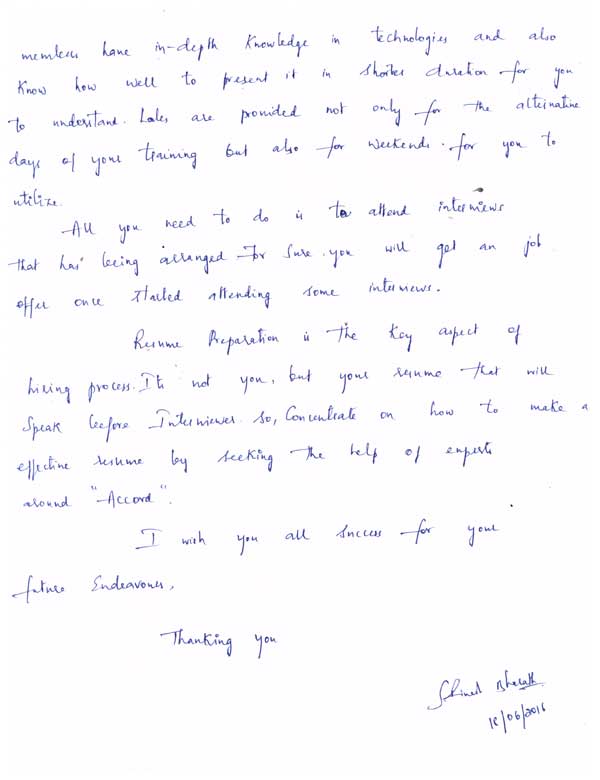 members have in-depth Knowledge in technologies and also
Know how well to present it in shorter duration for you
to understand. Labs are provided not only for the alternative
days of your training but also for weekends. for you to
utilize.
All you need to do is to attend interviews
that has being arranged for sure. you will get an job
offer once started attending some interviews.
Resume Preparation is the key aspect of
hiring process. Its not you, but your resume that will
speak before Interviewer. so, Concentrate on how to make a
effective resume by seeking the help of experts
around "Accord".
I wish you all success for your
future Endeavours,
Thanking you
Bharath
/06/2016